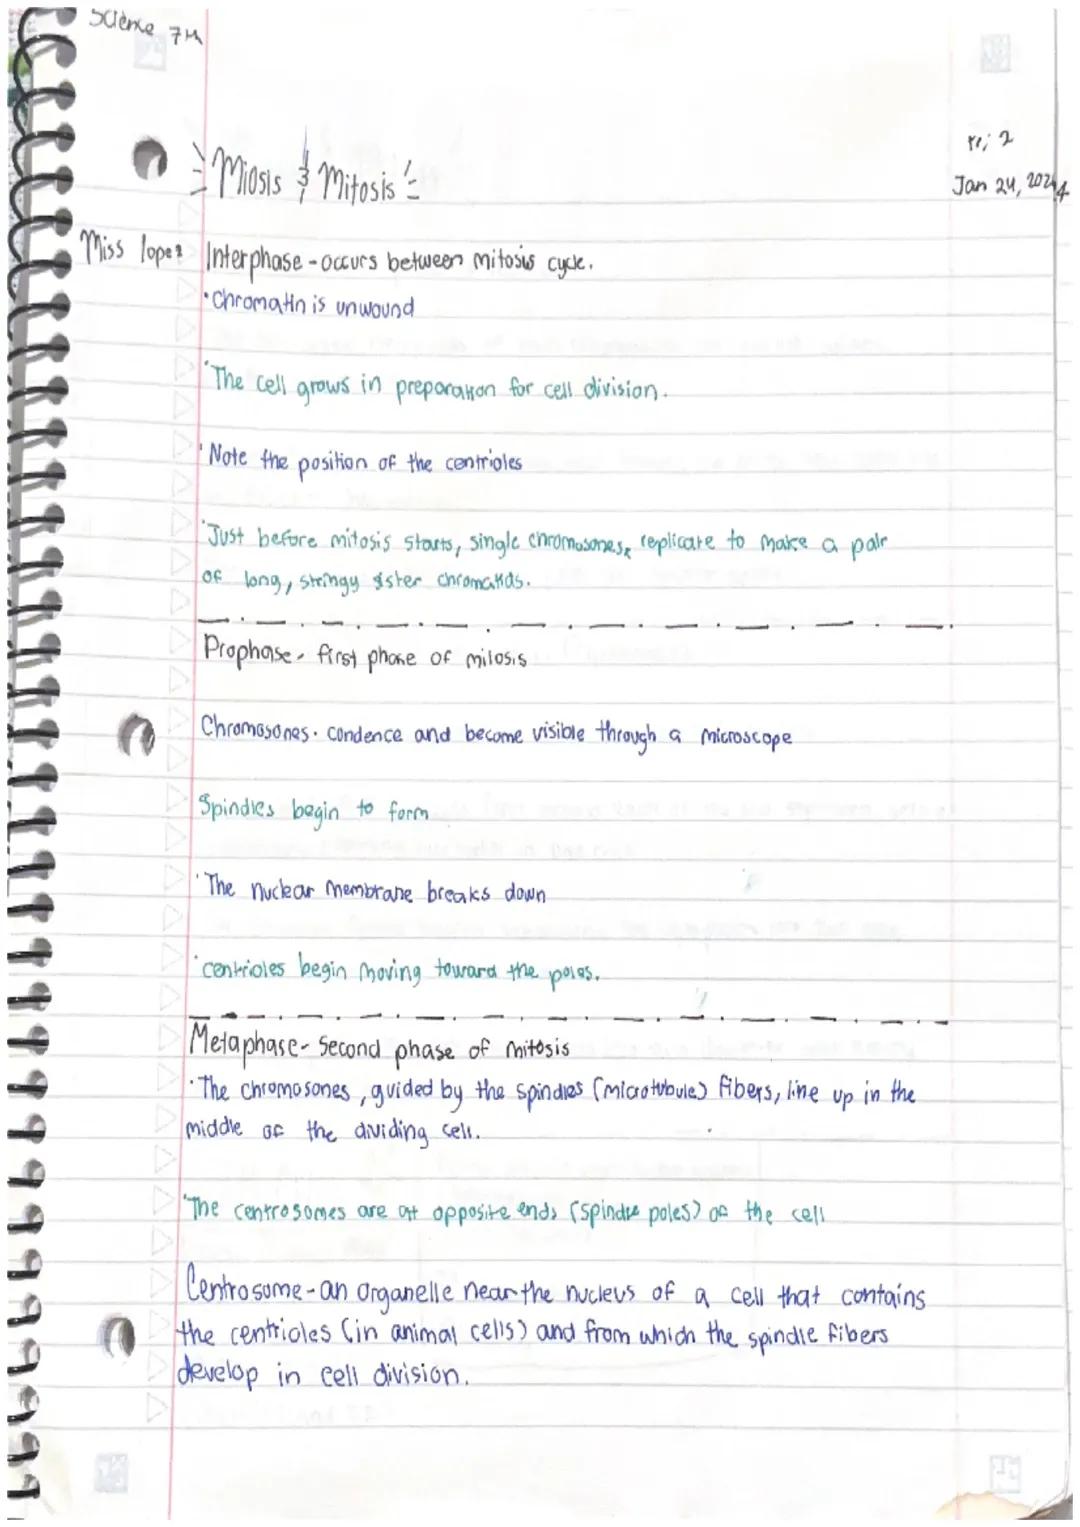 Science 7M
Miosis & Mitosis
Jan 24, 2024
Miss lopez
Interphase - occurs between mitosis cycle.
· Chromatin is unwound
· The cell grows in preparation for cell division.
· Note the position of the centrioles
· Just before mitosis starts, single chromosones, replicate to make a pair
of long, stringy sister chromatids.
Prophase - first phase of mitosis
Chromosones - condence and become visible through a microscope
Spindles begin to form
· The nuclear membrane breaks down
· centrioles begin moving toward the poles.
Metaphase - Second phase of mitosis
· The chromosones, guided by the spindles (microtubule) fibers, line up in the
middle of the dividing cell.
· The centrosomes are at opposite ends (spindle poles) of the cell
Centrosome - an organelle near the nucleus of a cell that contains
the centrioles (in animal cells) and from which the spindle fibers
develop in cell division.